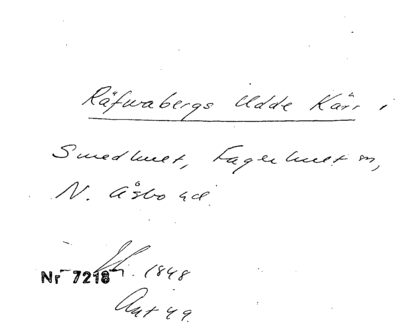 Räfwabergs Udde Kärr i
Smedhult, Fagerhult sn,
N. Åsbo hd.
Nr 7218
1848
Akt 49.